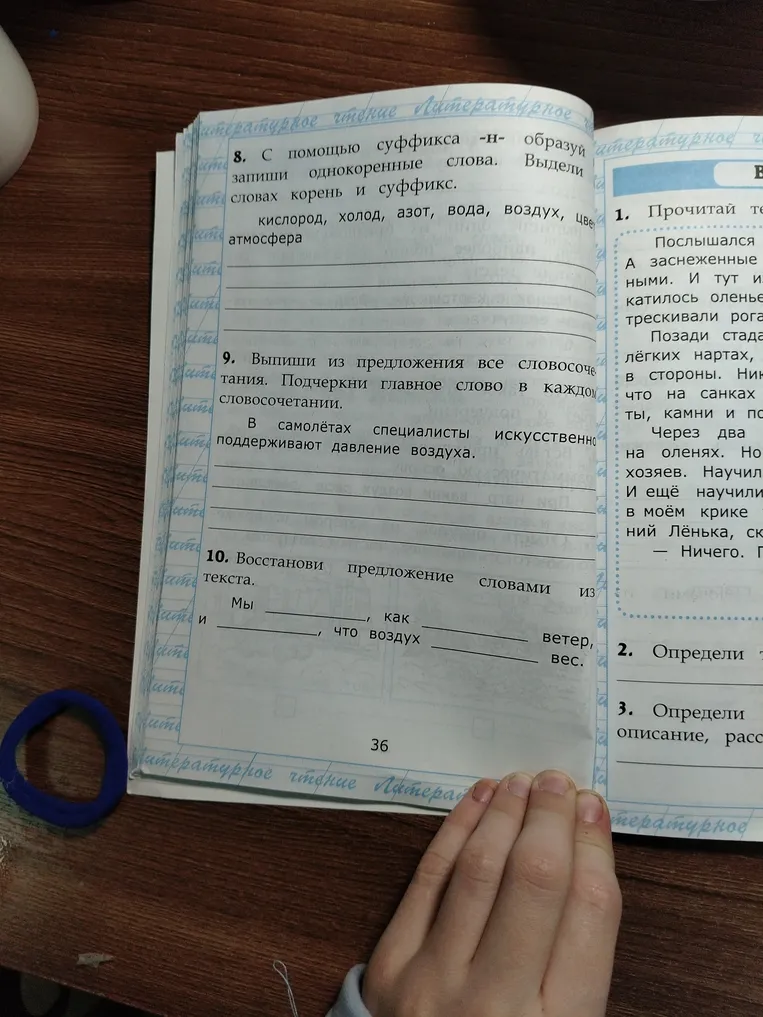 Литературное чтение Литературное
8. С помощью суффикса -н- образуй
запиши однокоренные слова. Выдели
словах корень и суффикс.
кислород, холод, азот, вода, воздух, цве
атмосфера
9. Выпиши из предложения все словосоче-
тания. Подчеркни главное слово в каждо
словосочетании.
В самолётах специалисты искусственно
поддерживают давление воздуха.
10. Восстанови предложение словами из
текста.
Мы ____________, как ____________ ветер,
и ____________, что воздух ____________ вес.
36
Литературное чтение Литера
Литературное ч
В
1. Прочитай те
Послышался
А заснеженные
ными. И тут и
катилось олень
трескивали рога
Позади стада
лёгких нартах,
в стороны. Ник
что на санках
ты, камни и по
Через два
на оленях. Но
хозяев. Научил
И ещё научили
в моём крике
ний Лёнька, ск
— Ничего. П
2. Определи т
3. Определи
описание, расс
Литературное